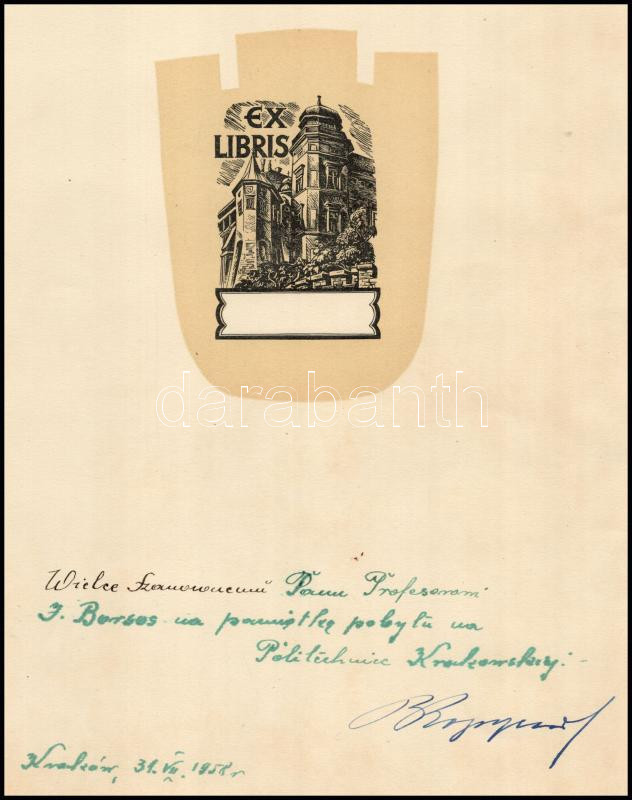 EX
LIBRIS
darabanth
Wielce Szanownemu Panu Profesorowi
J. Borsos na pamiątkę pobytu na
Politechnice Krakowskiej.
Kraków, 31. VII. 1958 r